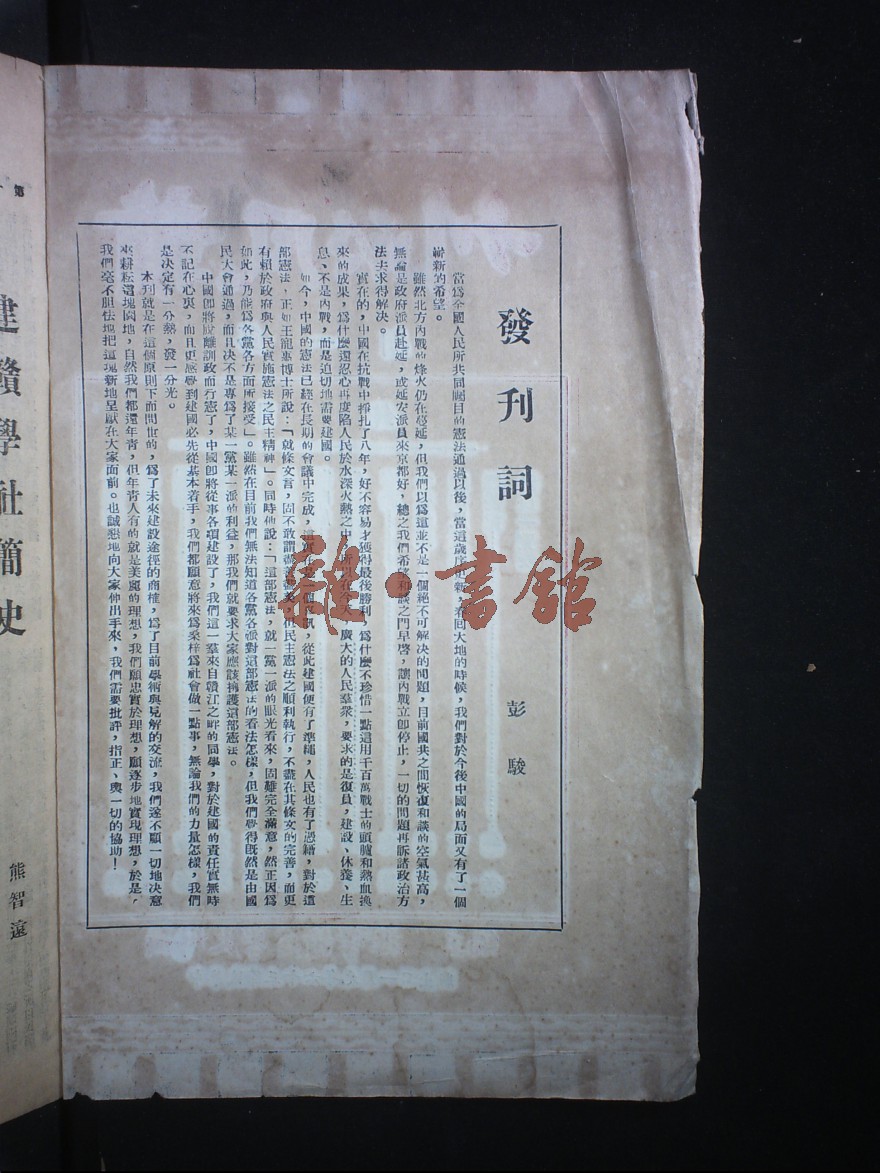 發刊詞
彭駿
當爲全國人民所共同矚目的憲法通過以後，當這歲更新，春回大地的時候，我們對於今後中國的局面又有了一個
嶄新的希望。
雖然北方內戰的烽火仍在蔓延，但我們以爲這並不是一個絕不可解決的問題，目前國共之間恢復和談的空氣甚高，
無論是政府派員赴延，或延安派員來京都好，總之我們希望和談之門早啓，讓內戰立卽停止，一切的問題再訴諸政治方
法去求得解決。
實在的，中國在抗戰中掙扎了八年，好不容易才獲得最後勝利，爲什麼不珍惜一點這用千百萬戰士的頭顱和熱血換
來的成果，爲什麼還忍心再度陷人民於水深火熱之中，所以在今天，廣大的人民羣衆，要求的是復員，建設、休養、生
息、不是內戰，而是迫切地需要建國。
如今，中國的憲法已經在長期的會議中完成，這實一個，從此建國便有了準繩，人民也有了憑藉，對於這
部憲法，正如王寵惠博士所說：「就條文言，固不敢謂盡善盡美，但民主憲法之順利執行，不盡在其條文的完善，而更
有賴於政府與人民實施憲法之民主精神」。同時他說：「這部憲法，就一黨一派的眼光看來，固難完全滿意，然正因爲
如此，乃能爲各黨各方面所接受」。雖然在目前我們無法知道各黨各派對這部憲法的看法怎樣，但我們覺得旣然是由國
民大會通過，而且決不是專爲了某一黨某一派的利益，那我們就要求大家應該擁護這部憲法。
中國卽將脫離訓政而行憲了，中國卽將從事各項建設了，我們這一羣來自贛江之畔的同學，對於建國的責任實無時
不記在心裏，而且更感覺到建國必先從基本着手，我們都願意將來爲桑梓爲社會做一點事，無論我們的力量怎樣，我們
是決定有一分熱，發一分光。
本刊就是在這個原則下面問世的，爲了未來建設途徑的商榷，爲了目前學術與見解的交流，我們遂不顧一切地決意
來耕耘這塊園地，自然我們都還年靑，但年靑人有的就是美麗的理想，我們願忠實於理想，願逐步地實現理想，於是，
我們毫不胆怯地把這塊新地呈獻在大家面前。也誠懇地向大家伸出手來，我們需要批評，指正、與一切的協助！
第一
建贛學社簡史
熊智遠
雜·書館